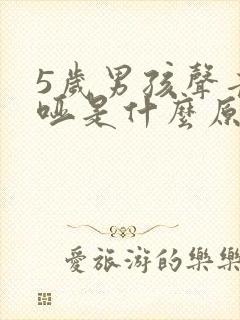 5歲男孩聲
啞是什麼原
愛旅游的樂樂